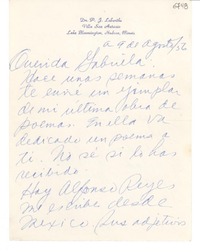 Dr. P. J. Labarthe
Villa San Antonio
Lake Bloomington, Hudson, Illinois
a 9 de agosto/52
Querida Gabriela:
Hace unas semanas
te envié un ejemplar
de mi última obra de
poemas. En ella va
dedicado un poema a
ti. No sé si lo has
recibido.
Hoy Alfonso Reyes
me escribe desde
Mexico. Sus adjetivos